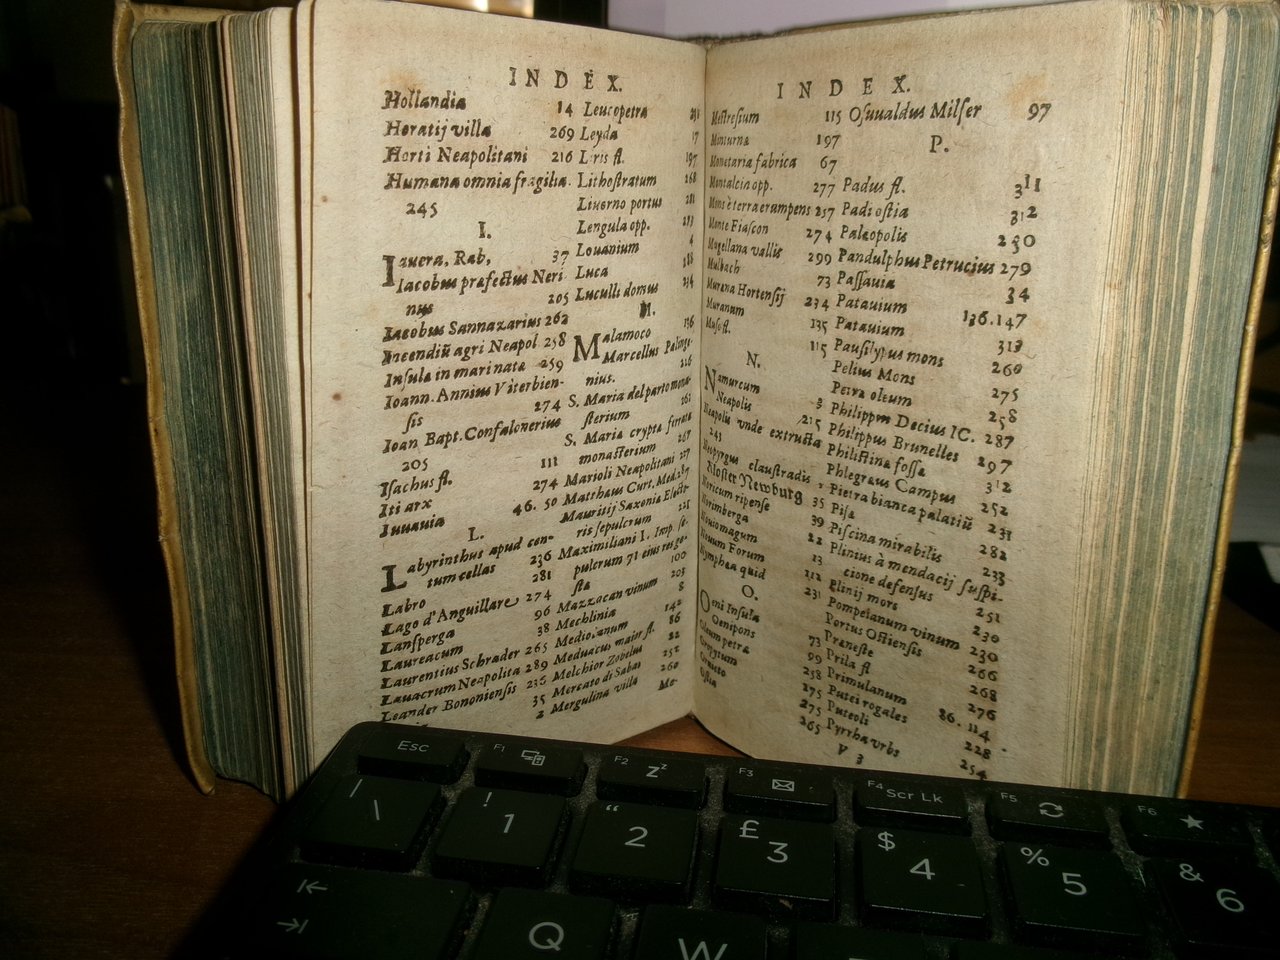 INDEX.
Hollandia 14
Horatij villa 269
Horti Neapolitani 216
Humana omnia fragilia.
245
I.
Iauera, Rab, 37
Iacobus præfectus Neri
nus 205
Iacobus Sannazarius 262
Incendiũ agri Neapol 258
Insula in mari nata 259
Ioann. Annius Viterbien-
sis 274
Ioan Bapt. Confalonerius
205
Isachus fl. 111
Iti arx 274
Iuuauia 46. 50
L.
Labyrinthus apud cen-
tum cellas 236
Labro 281
Lago d'Anguillare 274
Lansperga 96
Laureacum 38
Laurentius Schrader 265
Lauacrum Neapolita 289
Leander Bononiensis 236
35
2
Leucopetra
Leyda 17
Liris fl. 197
Lithostratum 268
Liuerno portus 281
Lengula opp. 273
Louanium 4
Luca 288
Luculli domus 234
M.
Malamoco 136
Marcellus Palinge-
nius. 226
S. Maria del parto mona-
sterium 261
S. Maria crypta ferrata
monasterium 267
Marioli Neapolitani 227
Matthæus Curt. Med. 287
Mauritij Saxonia Elector-
ris sepulcrum 225
Maximiliani I. Imp. se-
pulcrum 71 eius res ge-
sta 100
Mazzacan vinum 203
Mechlinia 8
Mediolanum 142
Meduacus maior fl. 86
Melchior Zobelus 22
Mercato di Sabas 252
Mergulina villa 260
Me-
INDEX.
Mestresium 115
Monurna 197
Monetaria fabrica 67
Montalcin opp. 277
Mons è terra erumpens 257
Monte Fiascon 274
Mugellana vallis 299
Mulbach 73
Murana Hortensij 234
Muranum 135
Muso fl. 115
N.
Namurcum 3
Neapolis 215
Neapolis vnde extructa
243
Neopyrgus claustradis
Kloster Newburg 35
Noricum ripense 39
Norimberga 22
Nouiomagum 13
Nouum Forum 112
Nymphæa quid 231
O.
Oeni Insula
Oenipons 73
Oleum petra 99
258
275
Ostia 275
265
V 3
Osuualdus Milser 97
P.
Padus fl. 311
Padi ostia 312
Palæopolis 230
Pandulphus Petrucius 279
Passauia 34
Patauium 136.147
Patauium 313
Pausilypus mons 260
Pelius Mons 275
Petra oleum 258
Philippus Decius IC. 287
Philippus Brunelles 297
Philistina fossa 312
Phlegræus Campus 252
Pietra bianca palatiũ 231
Pisa 282
Piscina mirabilis 233
Plinius à mendacij suspi-
cione defensus 251
Plinij mors 230
Pompeianum vinum 230
Portus Ostiensis 266
Præneste 268
Prila fl 276
Primulanum 86. 114
Putei rogales 228
Puteoli 254
Pyrrha vrbs
Esc
F1
F2 Zz
F3
F4 Scr Lk
F5
F6
| \
! 1
“ 2
£ 3
$ 4
% 5
& 6
Q
W